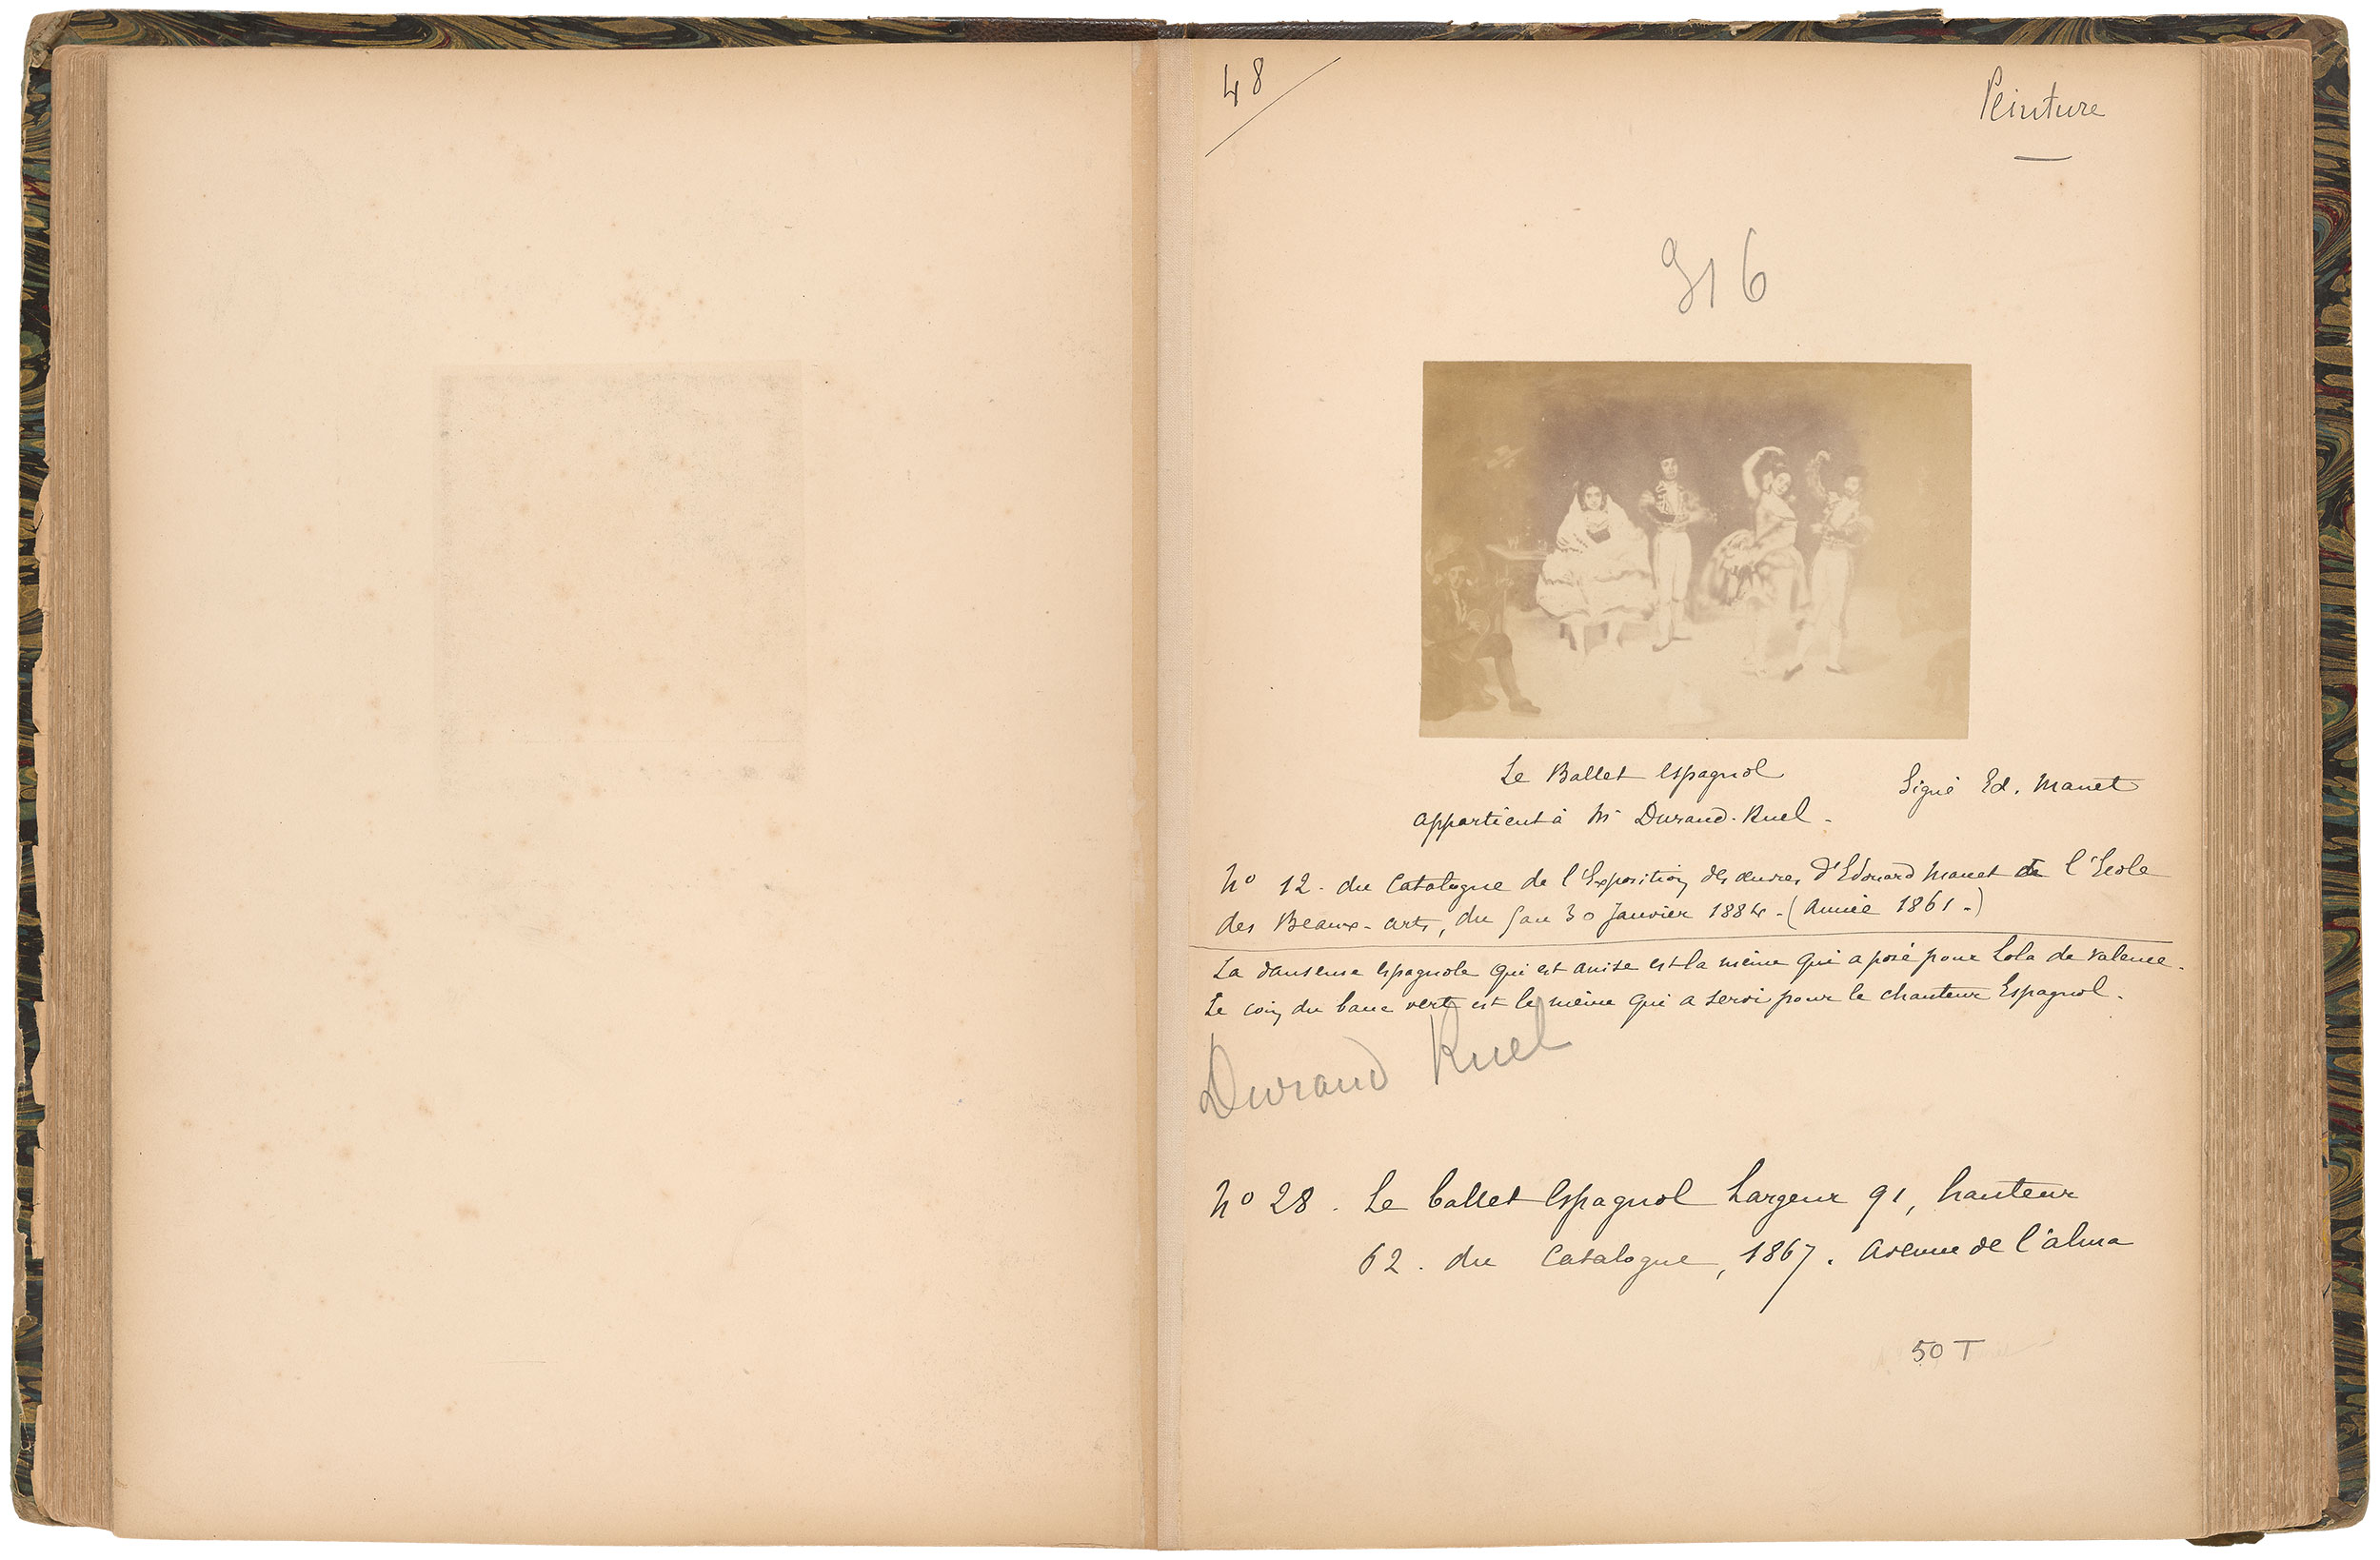 48
Peinture
316
Le Ballet Espagnol
Signé Ed. Manet
appartient à Mr Durand-Ruel -
No 12. du Catalogue de l'Exposition des œuvres d'Edouard Manet de l'Ecole
des Beaux-arts, du 5 au 30 Janvier 1884. (Année 1861.)
La danseuse espagnole qui est assise est la même qui a posé pour Lola de Valence.
Le coin du banc vert est le même qui a servi pour le chanteur Espagnol.
Durand Ruel
No 28. Le ballet Espagnol Largeur 91, hauteur
62. du Catalogue, 1867. Avenue de l'alma
50 T